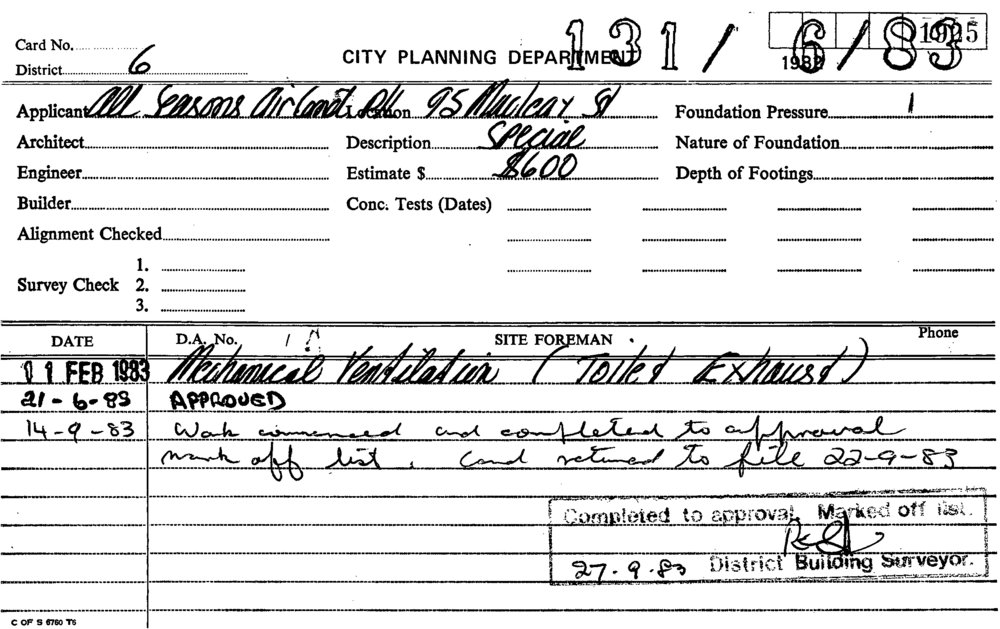 Card No.
District 6
CITY PLANNING DEPARTMENT
131/6/83
1983
Applicant All Seasons Airland P/L Location 95 Macleay St Foundation Pressure
Architect Description Special Nature of Foundation
Engineer Estimate $ $600 Depth of Footings
Builder Conc. Tests (Dates)
Alignment Checked
1.
Survey Check 2.
3.
DATE D.A. No. SITE FOREMAN Phone
01 FEB 1983 Mechanical Ventilation (Toilet Exhaust)
21-6-83 APPROVED
14-9-83 Work commenced and completed to approval
mark off list. Card returned to file 22-9-83
Completed to approval. Marked off list.
27.9.83 District Building Surveyor.
C OF S 6760 T6